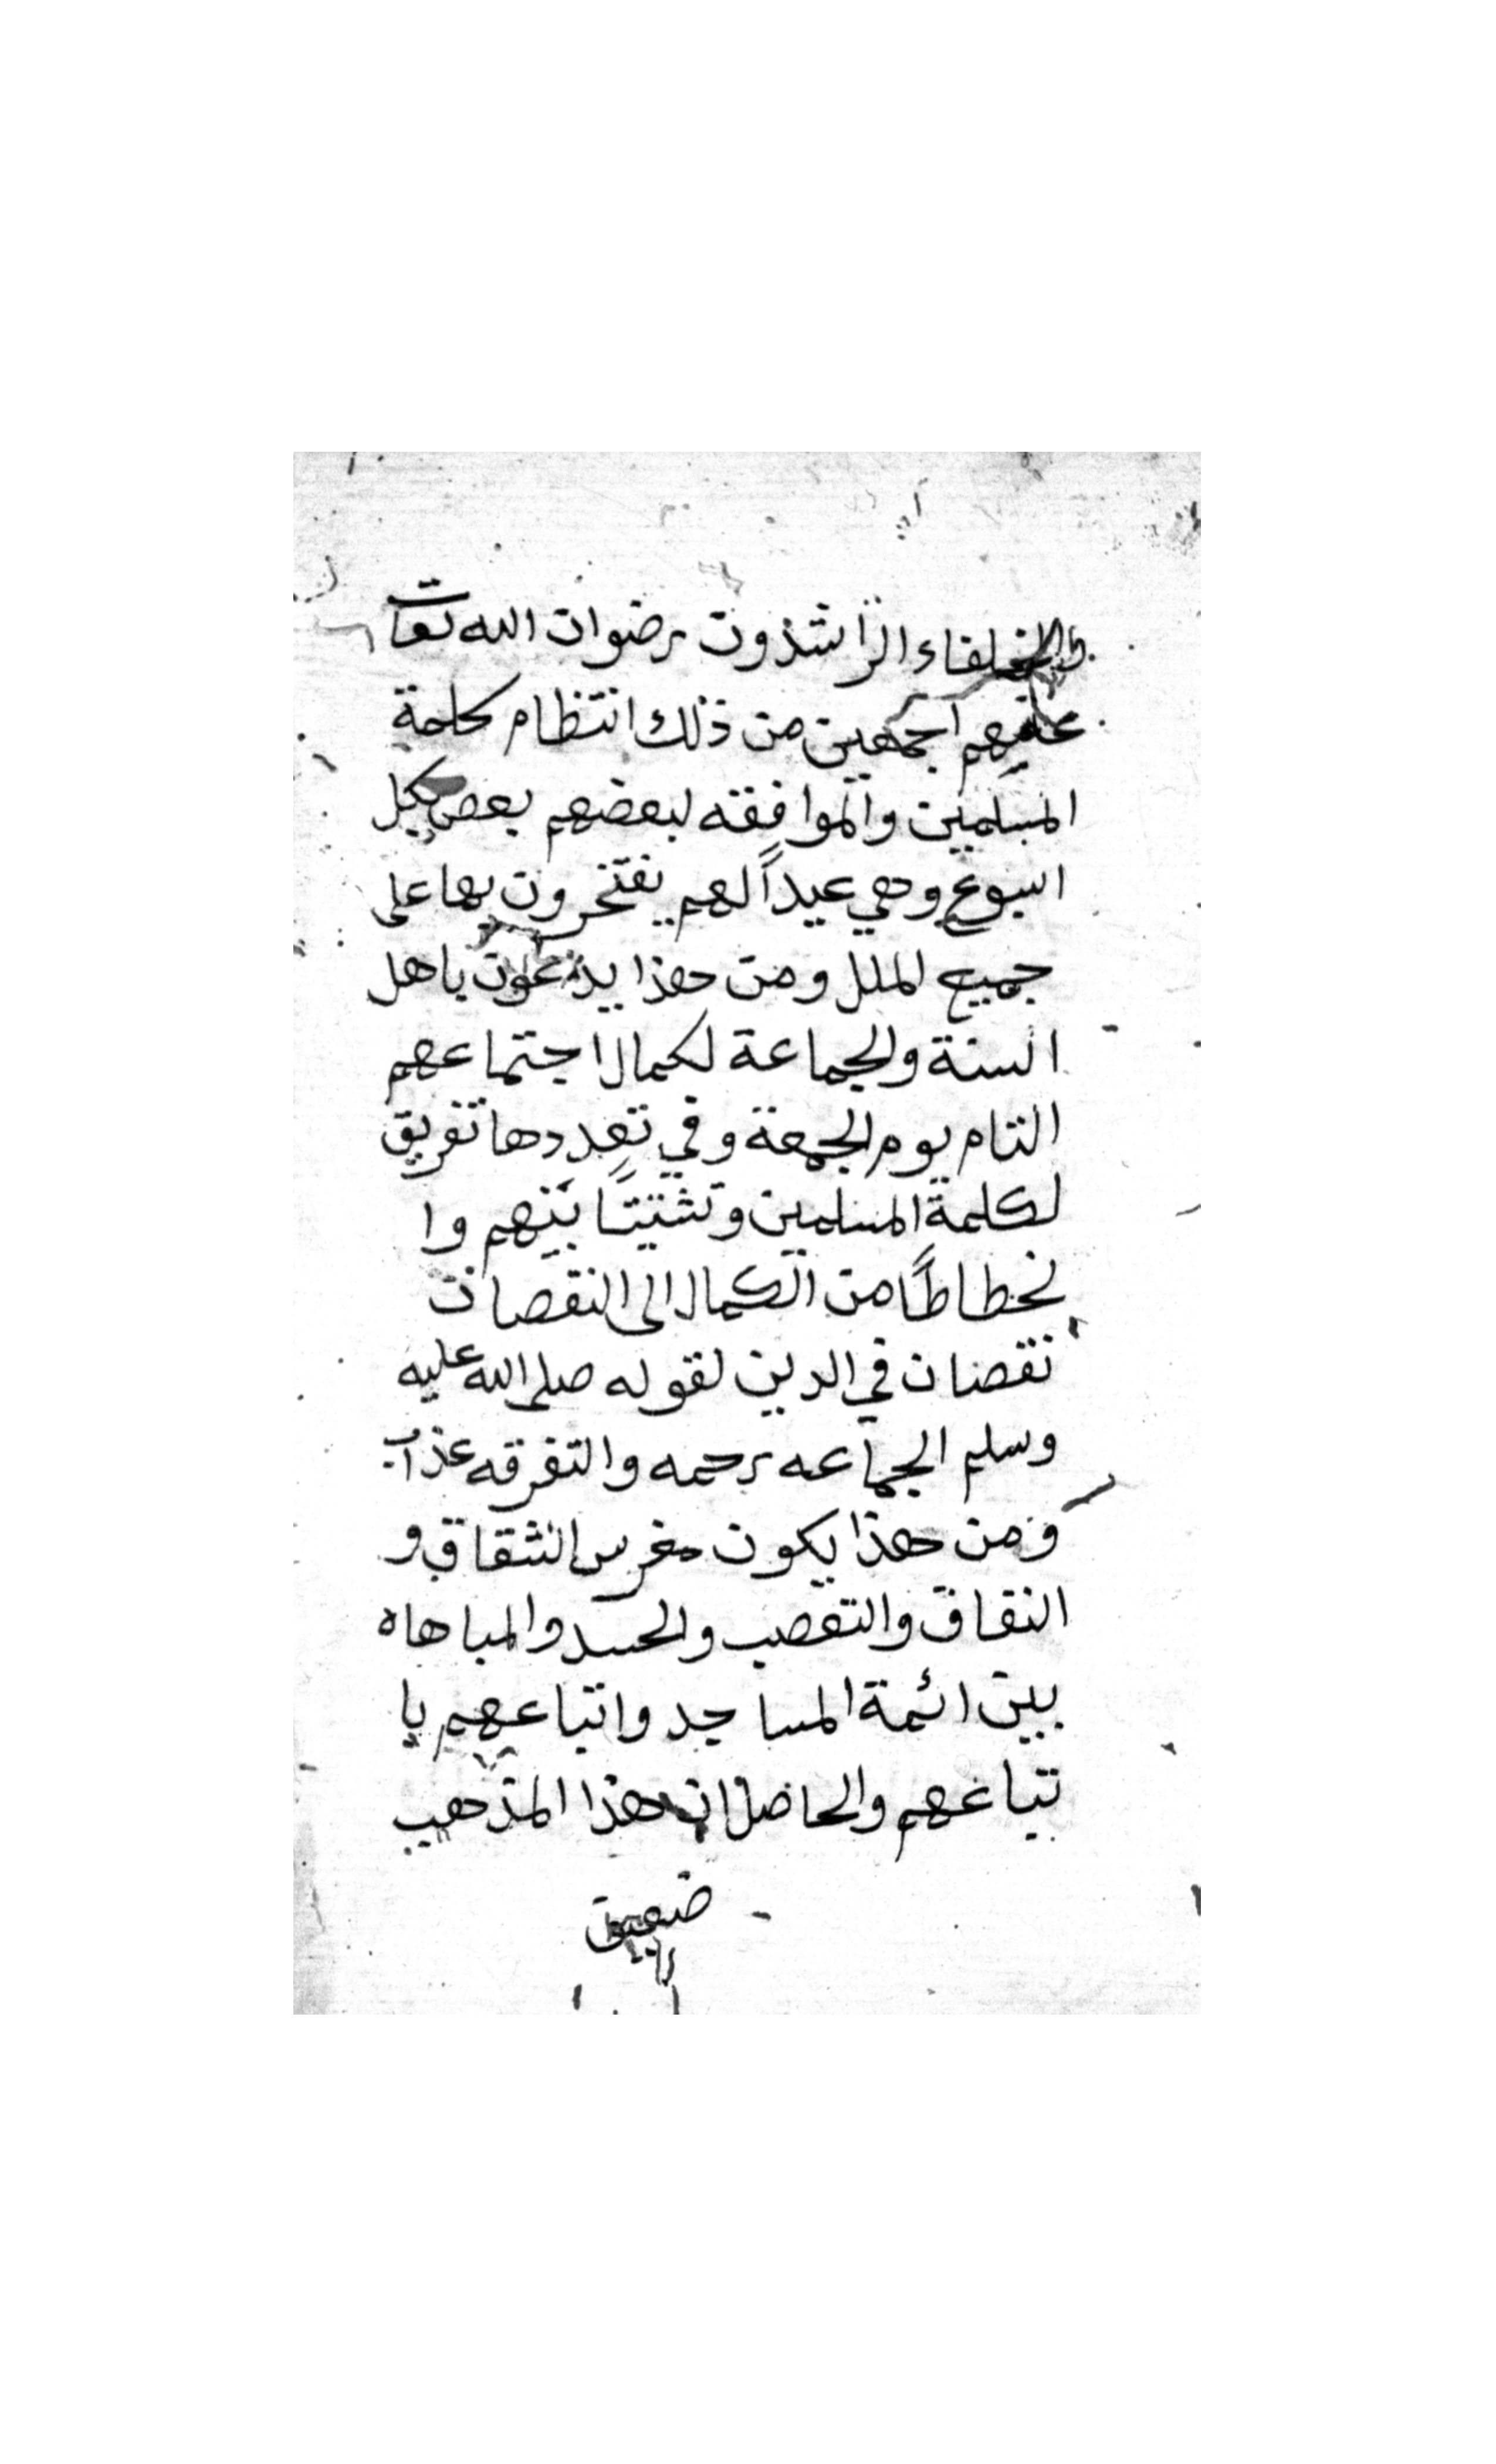 والخلفاء الراشذون رضوان الله تعالى
عليهم اجمعين من ذلك انتظام كلمة
المسلمين والموافقه لبعضهم بعض بكل
اسبوع وهي عيداً لهم يفتخرون بها على
جميع الملل ومن هذا يدعون باهل
السنة والجماعة لكمال اجتماعهم
التام يوم الجمعة وفي تعددها تفريق
لكلمة المسلمين وتشتيتا بينهم وا
نحطاطاً من الكمال الى النقصان
نقصان في الدين لقوله صلى الله عليه
وسلم الجماعه رحمه والتفرقه عذاب
ومن هذا يكون مغرس الشقاق و
النفاق والتعصب والحسد والمباهاه
بين ائمة المساجد واتباعهم با
تباعهم والحاصل ان هذا المذهب
ضعيق